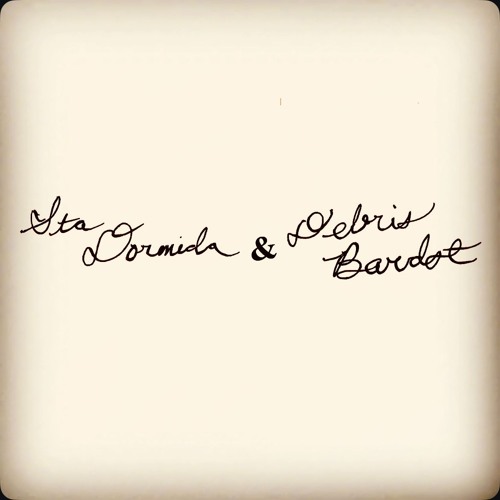 Sta Dormida & Debris Bardot